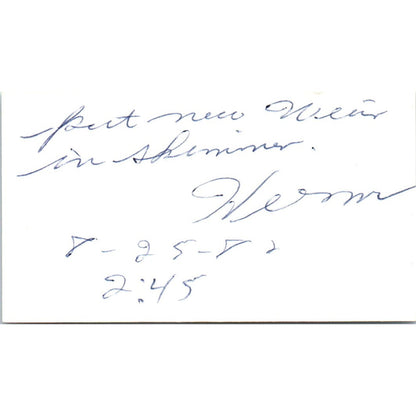 put new Weir
in skimmer.
Vernon
8-25-82
2:45